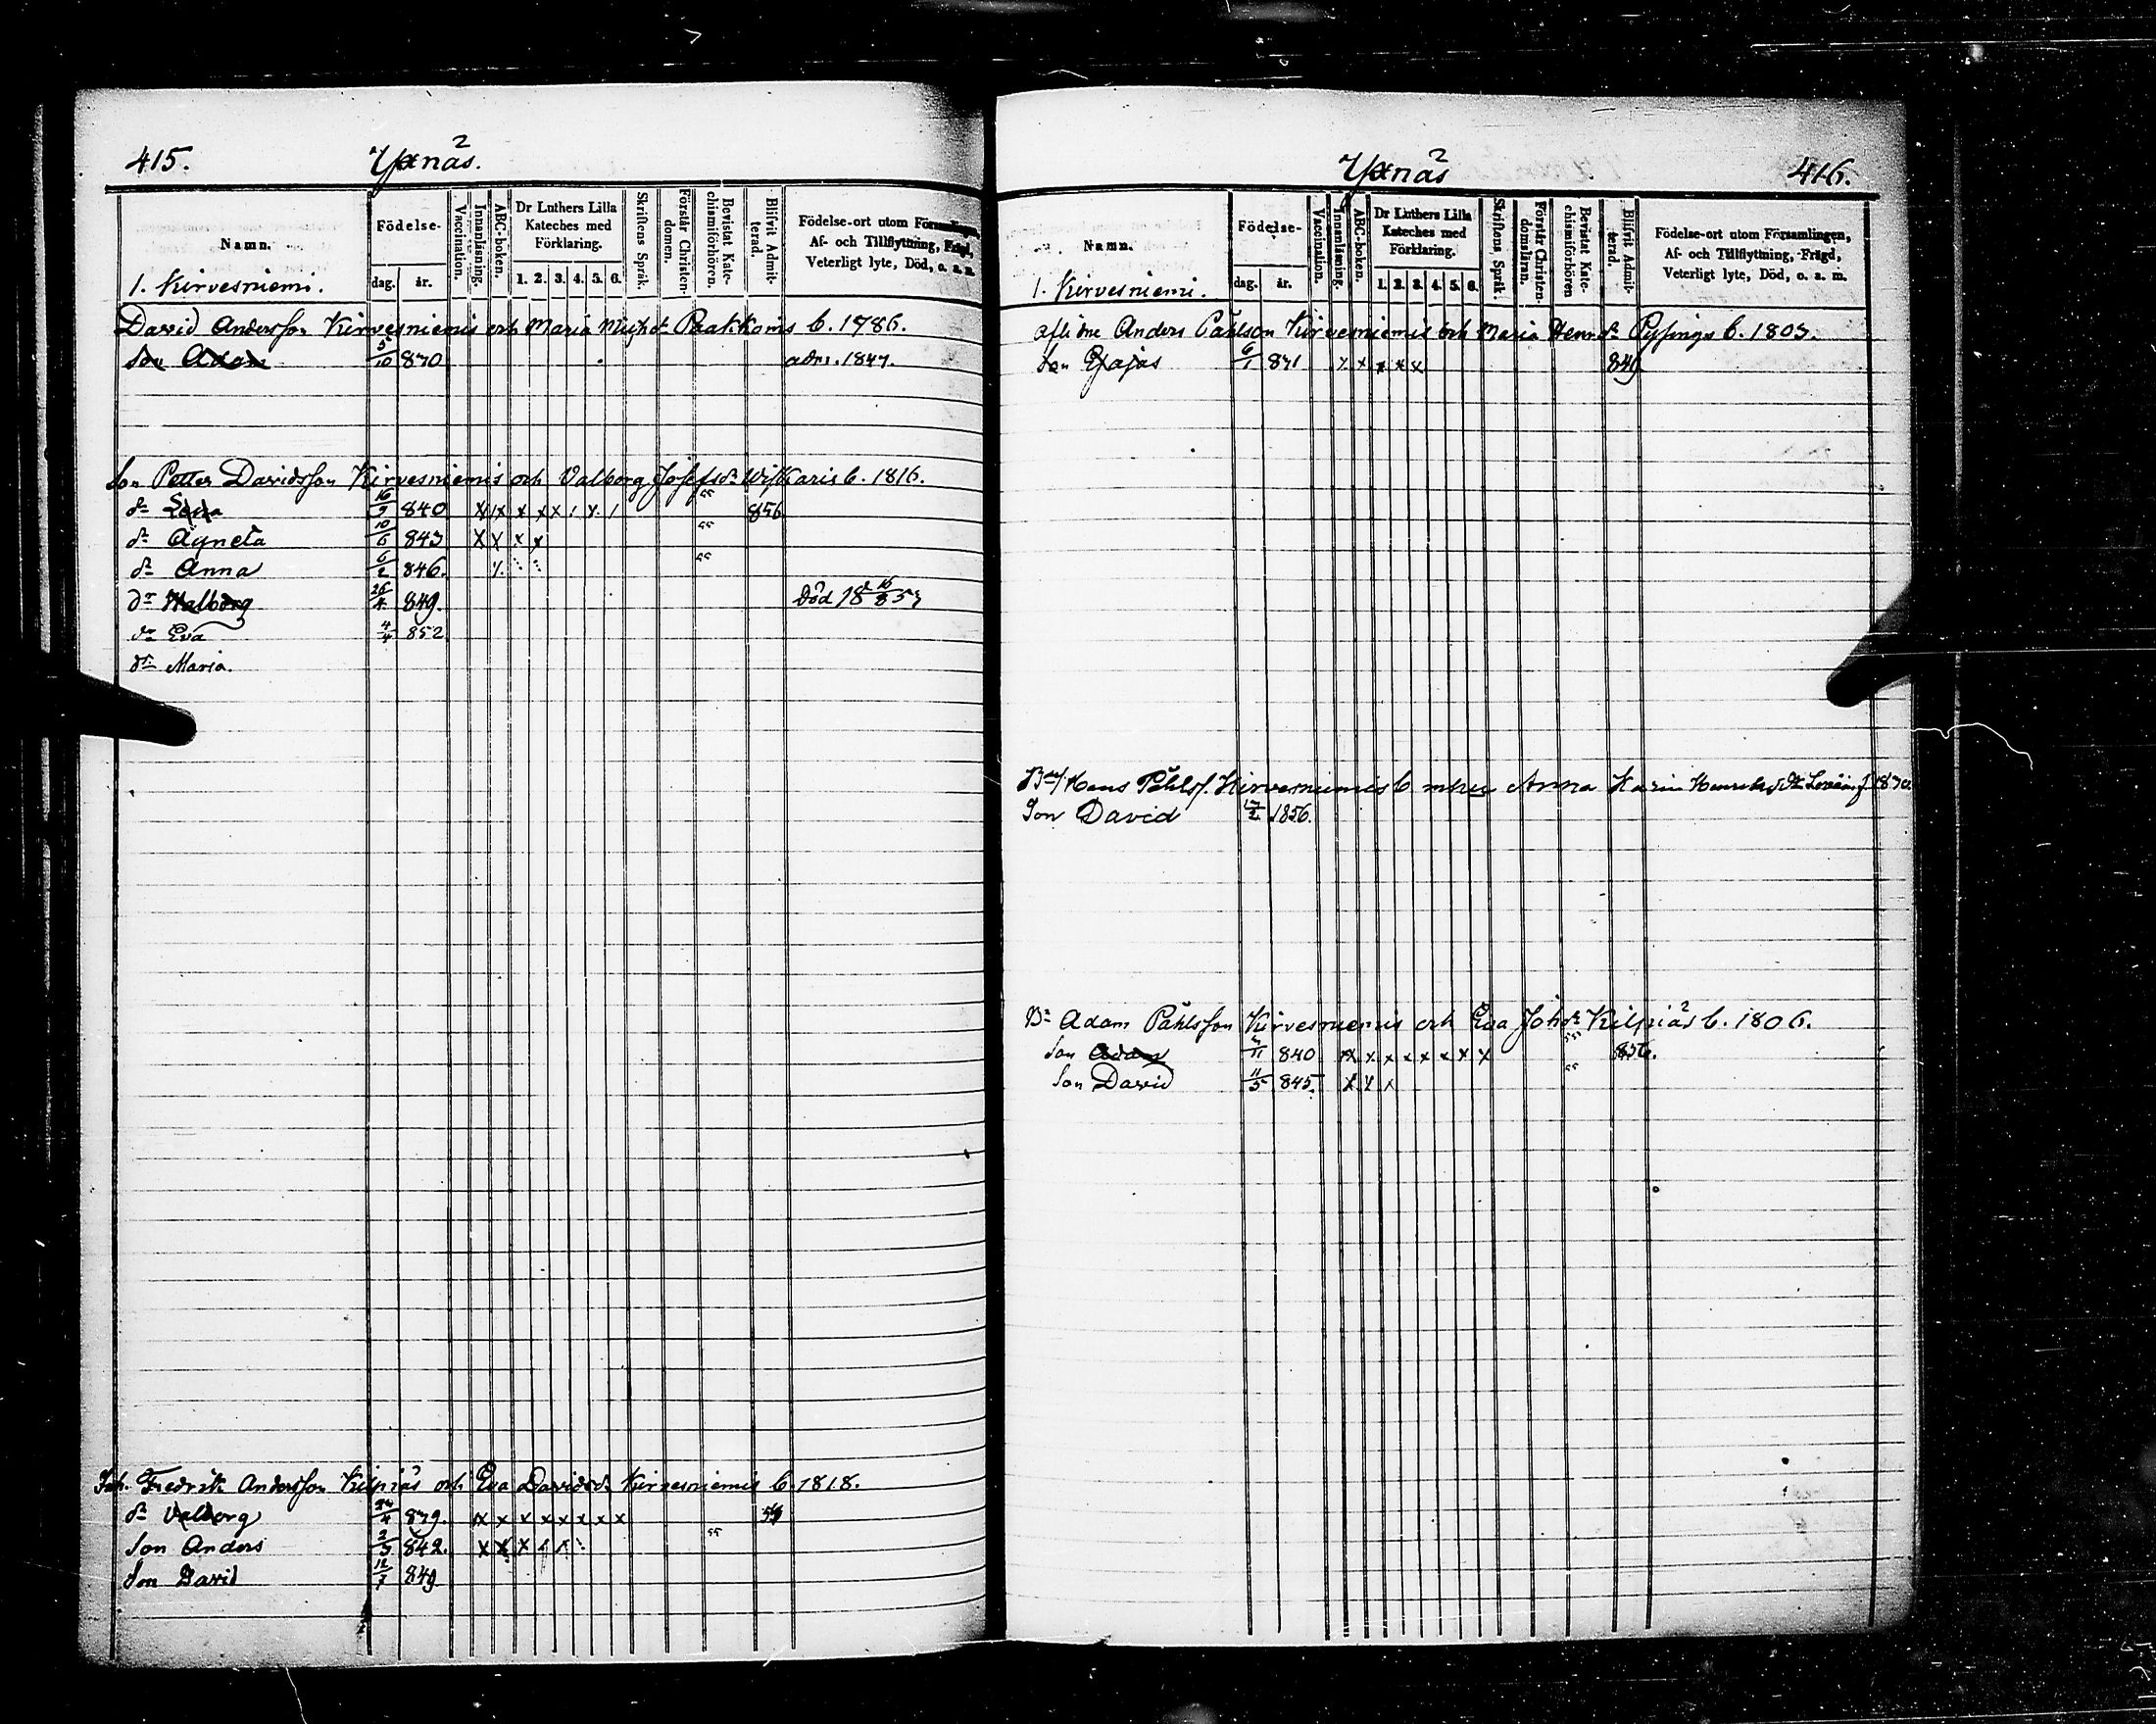 415. Yxnäs.
Namn. Födelse- Vaccination. Innanläsning. ABC-boken. Dr Luthers Lilla Kateches med Förklaring. Skriftens Språk. Förstår Christendomen. Bevistat Katechismiförhören. Blifvit Admitterad. Födelse-ort utom Församlingen, Af- och Tillflyttning, Frägd, Veterligt lyte, Död, o. a. m.
1. Kirvesniemi. dag. år. 1. 2. 3. 4. 5. 6.
David Andersson Kirvesniemis och Maria Mich.dr Paakkois b. 1786.
Son Adam 5/10 830 adm. 1847.
Son Petter Davidsson Kirvesniemis och Valborg Josefsdr Wiskaris b. 1816.
dr Lena 16/9 840 X 1X x x x / x. / 55 856
dr Agneta 10/6 843 X X x x 55
dr Anna 6/2 846. 55
dr Walborg 26/4 849. Död 18 16/8 53
dr Eva 4/4 852
dr Maria.
Inh. Fredrik Andersson Kilpiäs och Eva Davidsdr Kirvesniemis b. 1818.
dr Valborg 24/4 839. x x x x x x x x
Son Anders 2/5 842. x x x / / 55
Son David 12/7 849
Yxnäs 416.
Namn. Födelse- Vaccination. Innanläsning. ABC-boken. Dr Luthers Lilla Kateches med Förklaring. Skriftens Språk. Förstår Christendomsläran. Bevistat Katechismiförhören Blifvit Admitterad. Födelse-ort utom Församlingen, Af- och Tillflyttning, Frägd, Veterligt lyte, Död, o. a. m.
1. Kirvesniemi. dag. år. 1. 2. 3. 4. 5. 6.
aflidne Anders Påhlson Kirvesniemis och Maria Henr.dr b. 1803.
Son Esajas 6/1 831 x x x x x 849
Br Hans Påhlsf. Kirvesniemis b mhu Anna Karin Henriksdtr f. 1830.
Son David 17/2 1856.
Br Adam Påhlsson Kirvesniemis och Eva Joh.dr Kilpiäs b. 1806.
Son Adam 840 x x x x x x x x 55 856.
Son David 11/5 845. X X x 55